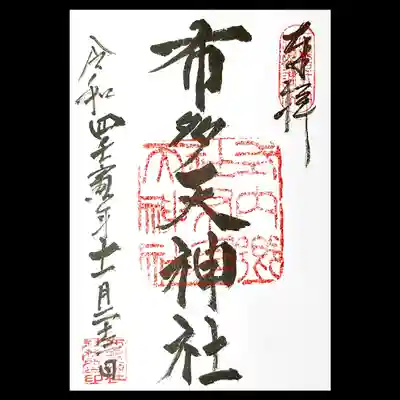 奉拝
布多天神社
令和四壬寅年十一月二十六日